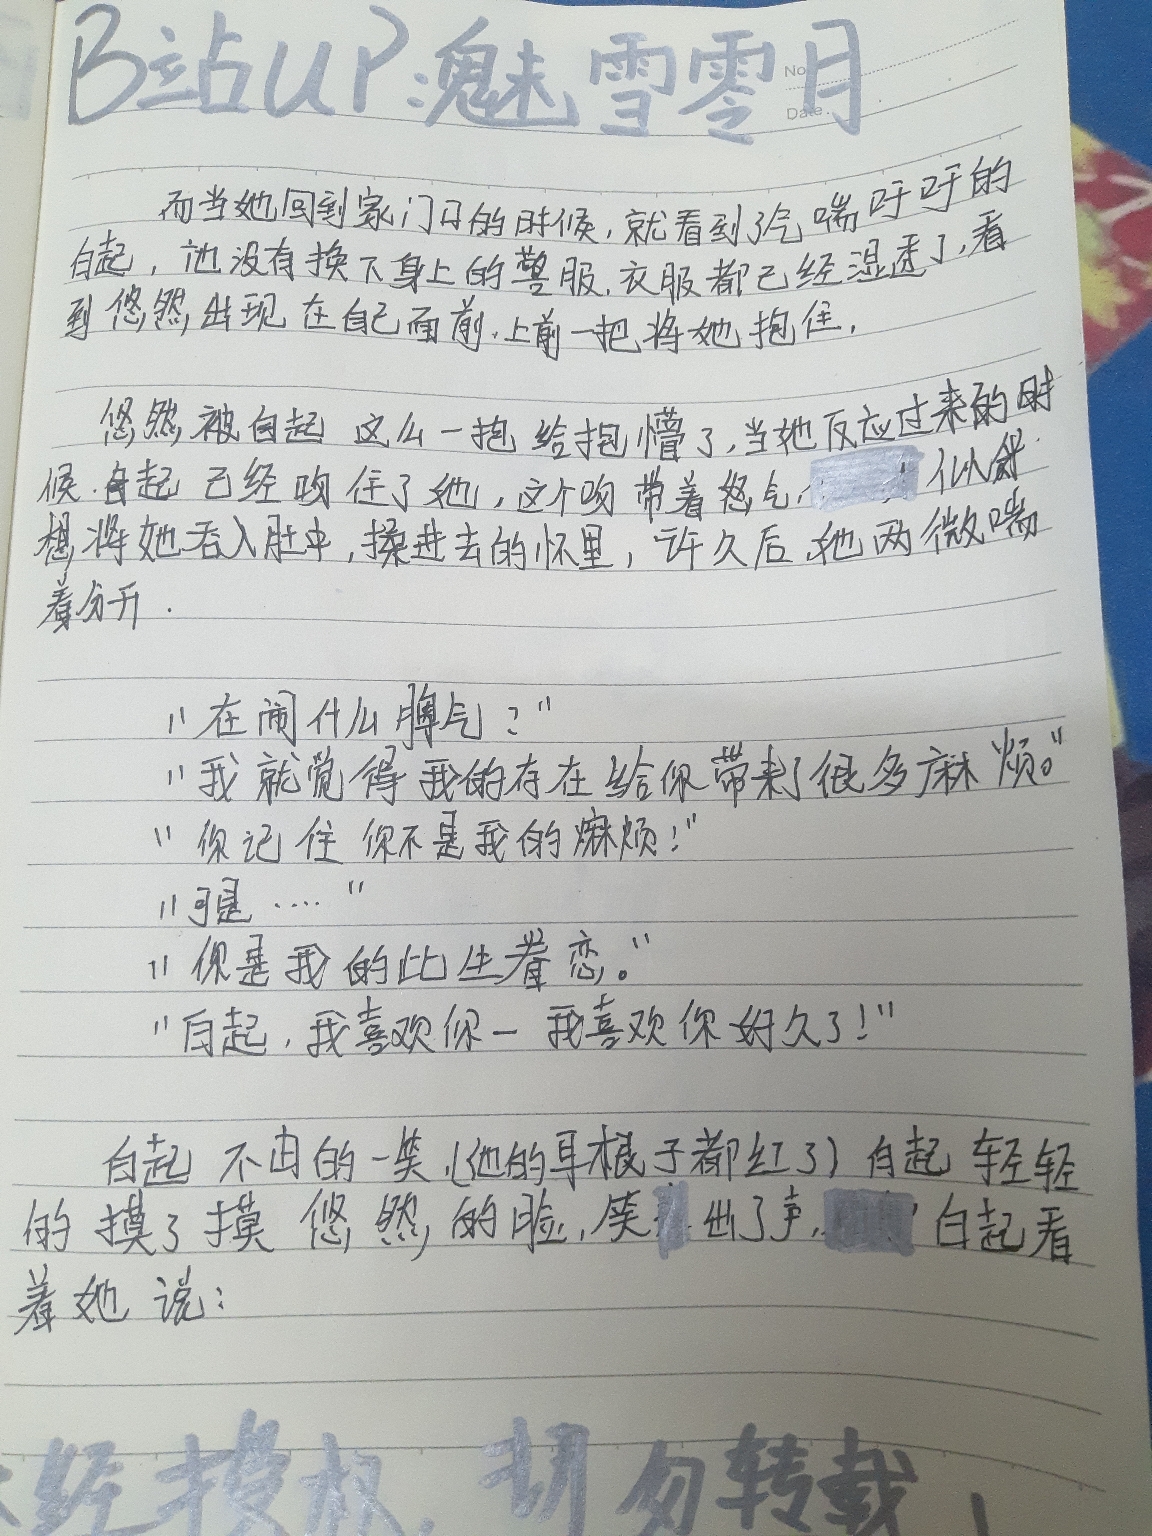 B站UP:魅雪零月
No.
Date.
而当她回到家门口的时候,就看到了气喘吁吁的
白起,他没有换下身上的警服,衣服都已经湿透了,看
到悠然出现在自己面前,上前一把将她抱住,
悠然被白起这么一抱给抱懵了,当她反应过来的时
候,白起已经吻住了她,这个吻带着怒气,似乎
想将她吞入肚中,揉进去的怀里,许久后,她两微喘
着分开.
"在闹什么脾气?"
"我就觉得我的存在给你带来了很多麻"烦。"
"你记住你不是我的麻烦!"
"可是····"
"你是我的此生眷恋。"
"白起,我喜欢你一我喜欢你好久了!"
白起不由的一笑,(他的耳根子都红了)白起轻轻
的摸了摸悠然的脸,笑出了声,白起看
着她说:
经授权,切勿转载!